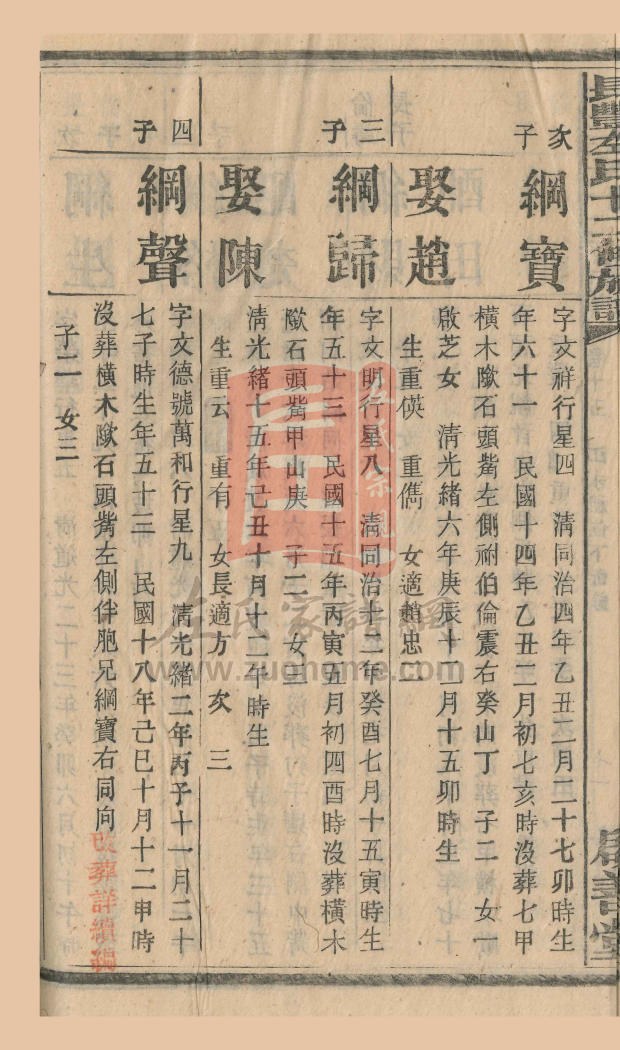 長豐左氏十二修族譜
次子
綱寶
字文祥行星四 清同治四年乙丑二月二十七卯時生
年六十一 民國十四年乙丑二月初七亥時沒葬七甲
橫木歐石頭觜左側祔伯倫震右癸山丁 子二 女一
娶趙
啟芝女 清光緒六年庚辰十二月十五卯時生
生重偀 重儁 女適趙忠二
三子
綱歸
字文明行星八 清同治十二年癸酉七月十五寅時生
年五十三 民國十五年丙寅五月初四酉時沒葬橫木
歐石頭觜甲山庚 子二 女三
娶陳
清光緒十五年己丑十月十二午時生
生重云 重有 女長適方 次 三
四子
綱聲
字文德號萬和行星九 清光緒二年丙子十一月二十
七子時生年五十三 民國十八年己巳十月十二甲時
沒葬橫木歐石頭觜左側伴胞兄綱寶右同向
改葬詳續編
子二 女三
左氏家譜網
www.zuohome.com